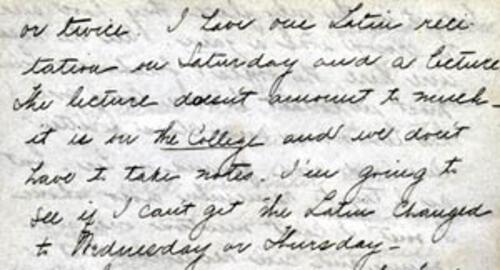 or twice. I have one Latin reci
tation on Saturday and a lecture
The lecture doesn't amount to much -
it is on the College and we don't
have to take notes. I'm going to
see if I can't get the Latin changed
to Wednesday or Thursday -